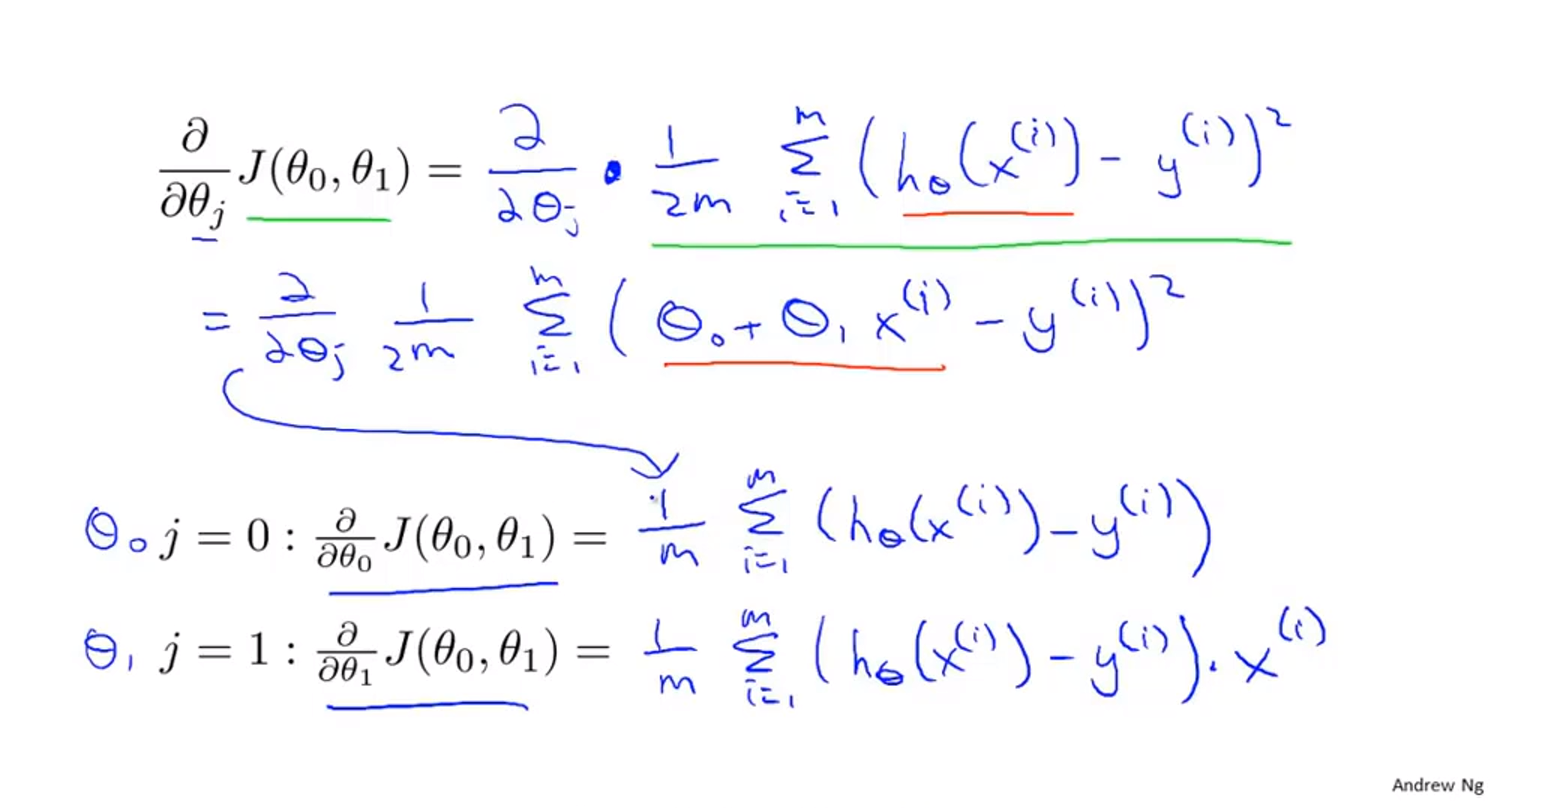 ∂/∂θⱼ J(θ₀, θ₁) = ∂/∂θⱼ · 1/2m Σᵢ₌₁ᵐ (h_θ(x⁽ⁱ⁾) - y⁽ⁱ⁾)²
= ∂/∂θⱼ 1/2m Σᵢ₌₁ᵐ (θ₀ + θ₁ x⁽ⁱ⁾ - y⁽ⁱ⁾)²
θ₀ j = 0 : ∂/∂θ₀ J(θ₀, θ₁) = 1/m Σᵢ₌₁ᵐ (h_θ(x⁽ⁱ⁾) - y⁽ⁱ⁾)
θ₁ j = 1 : ∂/∂θ₁ J(θ₀, θ₁) = 1/m Σᵢ₌₁ᵐ (h_θ(x⁽ⁱ⁾) - y⁽ⁱ⁾) · x⁽ⁱ⁾
Andrew Ng